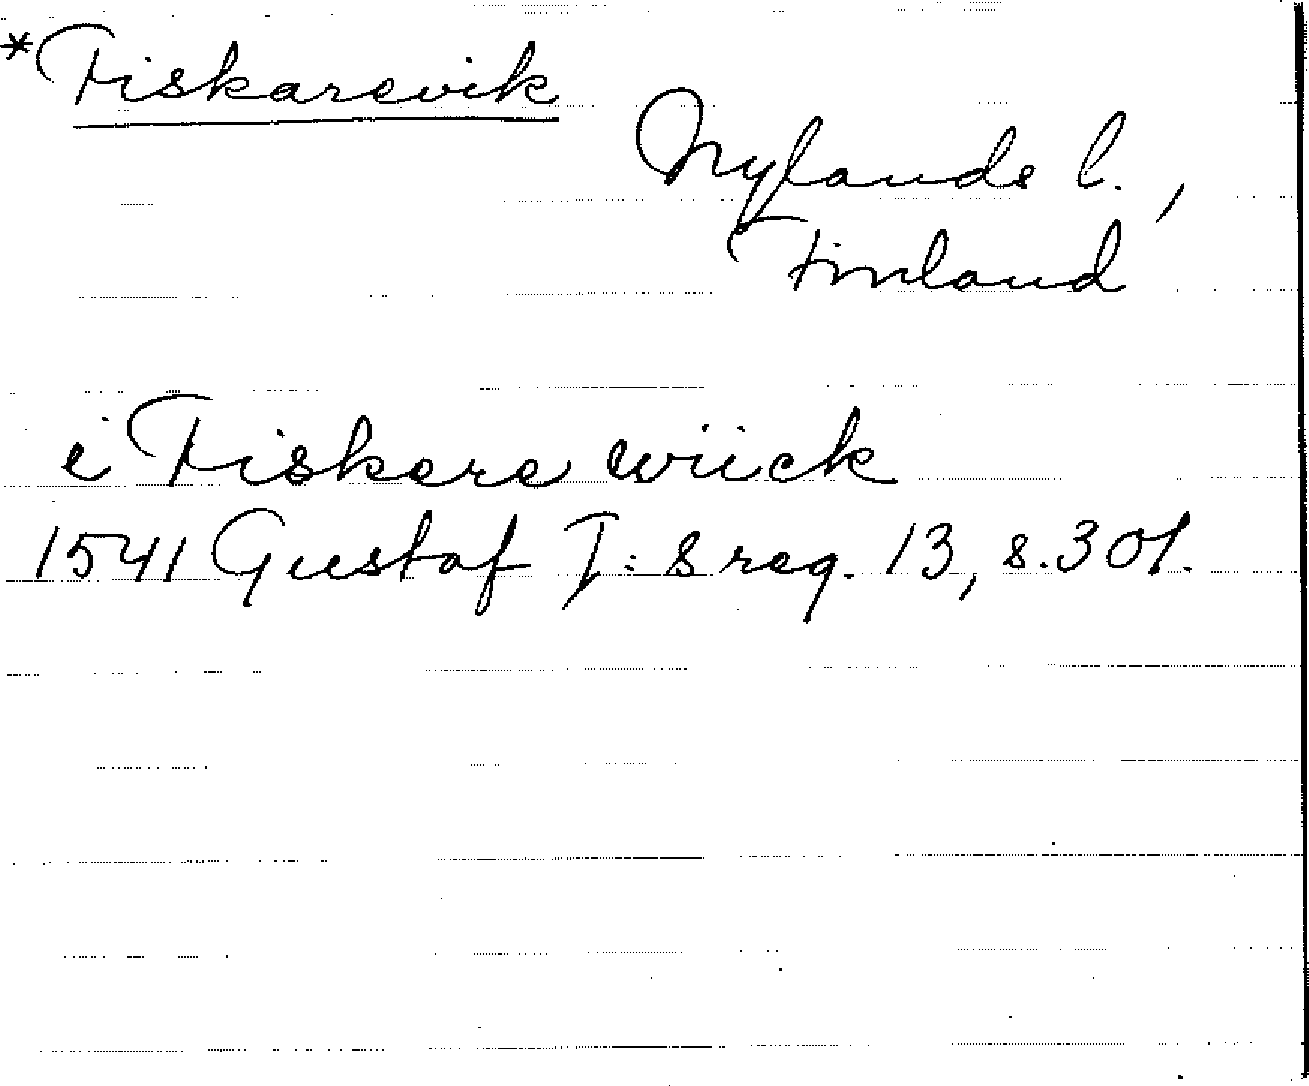 *Fiskarevik
Nylands l.,
Finland
i Fiskere wiick
1541 Gustaf I:s reg. 13, s. 301.